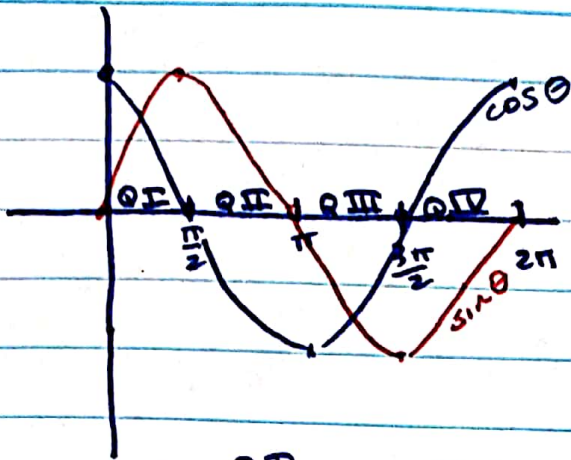 cos θ
QI QII QIII QIV
π/2 π 3π/2 2π
sin θ